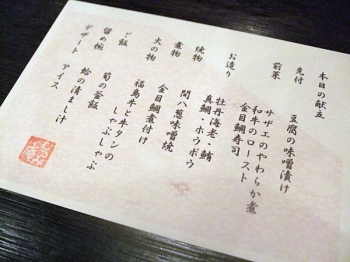 本日の献立
先付
豆腐の味噌漬け
前菜
サザエのやわらか煮
和牛のロースト
金目鯛寿司
お造り
牡丹海老・鯖
真鯛・ホウボウ
焼物
間八葱味噌焼
煮物
金目鯛煮付け
火の物
福島牛と牛タンの
しゃぶしゃぶ
ご飯
筍の釜飯
留め椀
蛤の清まし汁
デザート
アイス